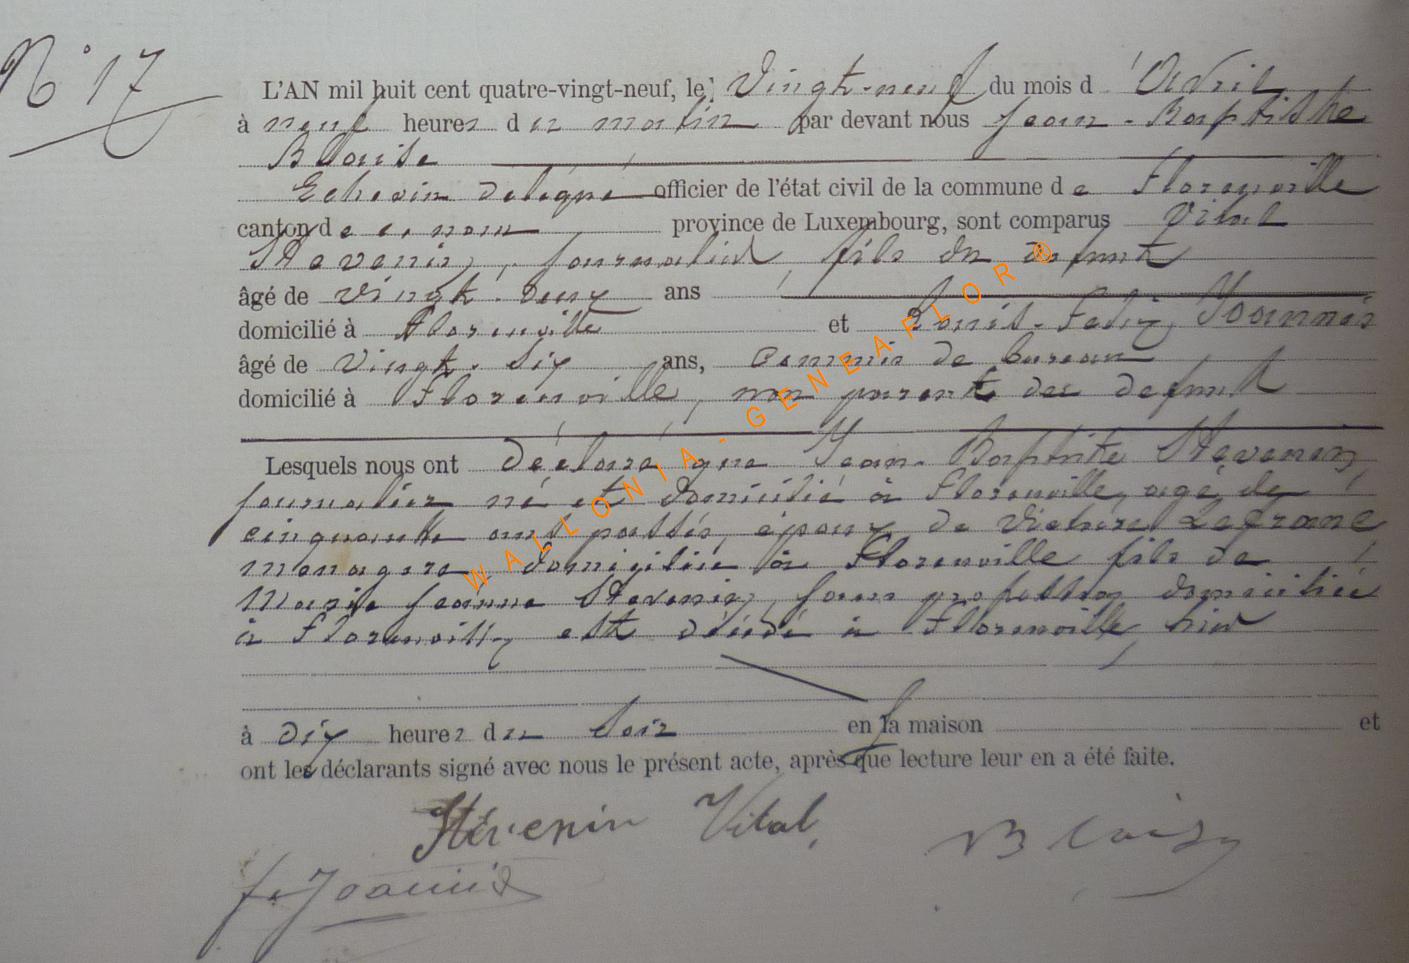 N° 17
L'AN mil huit cent quatre-vingt-neuf, le Vingt-neuf du mois d'Avril
à neuf heures du matin par devant nous Jean-Baptiste
Blaise
Echevin délégué officier de l'état civil de la commune de Florenville
canton de ce nom province de Luxembourg, sont comparus Vital
Stevenin, journalier, fils du défunt
âgé de vingt-deux ans
domicilié à Florenville et Louis-Felix Joannes
âgé de Vingt-six ans, commis de bureau
domicilié à Florenville, non parent du défunt
Lesquels nous ont déclaré que Jean-Baptiste Stevenin,
journalier né et domicilié à Florenville, agé de
cinquante ans passés, époux de Victoire Lefranc
menagere, domiciliée à Florenville fils de
Marie Jeanne Stevenin, sans profession domiciliée
à Florenville, est décédé à Florenville, hier
à dix heures du soir en sa maison et
ont les déclarants signé avec nous le présent acte, après que lecture leur en a été faite.
Stévenin Vital, Blaise
f. Joannis
WALLONIA-GENEAFLOR©